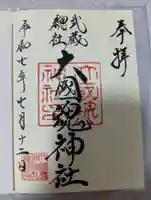 奉拝
武蔵
総社
大國魂神社
令和七年七月十二日